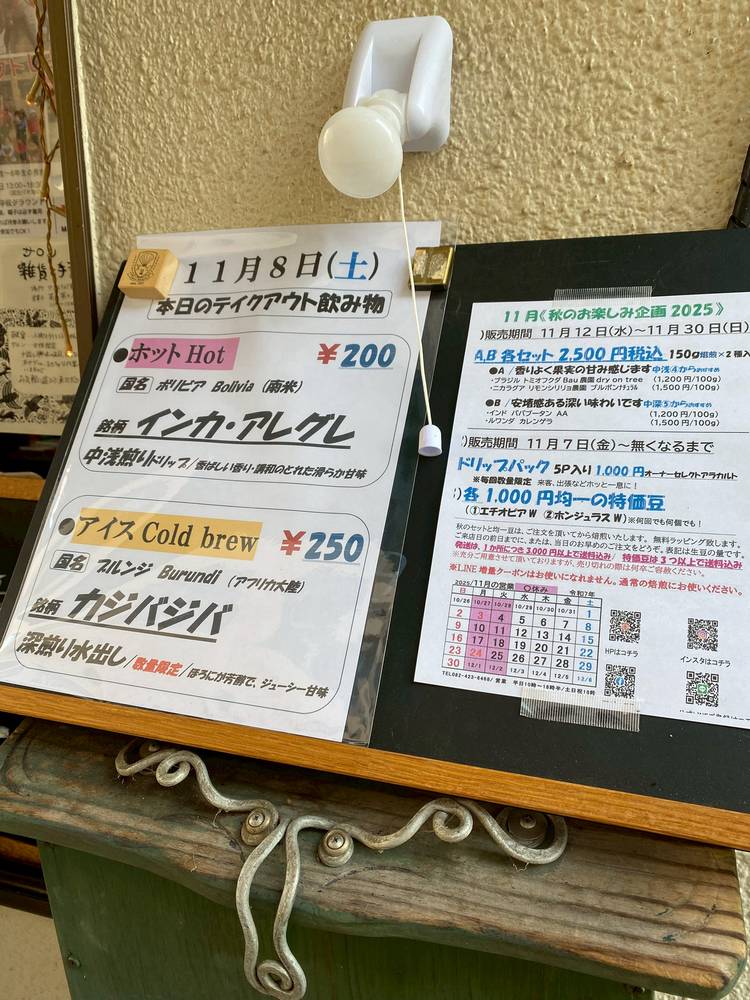 11月8日(土)
本日のテイクアウト飲み物
●ホット Hot ¥200
国名 ボリビア Bolivia (南米)
銘柄 インカ・アレグレ
中浅煎りドリップ/香ばしい香り・調和のとれた滑らか甘味
●アイス Cold brew ¥250
国名 ブルンジ Burundi (アフリカ大陸)
銘柄 カジバジバ
深煎り水出し/数量限定/ほうにが芳醇で、ジューシー甘味
11月《秋のお楽しみ企画2025》
)販売期間 11月12日(水)～11月30日(日)
A,B 各セット 2,500円税込 150g焙煎×2種入
●A / 香りよく果実の甘み感じます 中浅④からおすすめ
・ブラジル トミオフクダ Bau 農園 dry on tree (1,200円/100g)
・ニカラグア リモンシリリョ農園 ブルボンナチュラル (1,500円/100g)
●B / 安堵感ある深い味わいです 中深⑤からおすすめ
・インド パパブータン AA (1,200円/100g)
・ルワンダ カレンゲラ (1,500円/100g)
)販売期間 11月7日(金)～無くなるまで
ドリップパック 5P入り 1,000円 オーナーセレクトアラカルト
※毎回数量限定 来客、出張などホッと一息に！
)各1,000円均一の特価豆
(①エチオピアW ②ホンジュラスW)※何回でも何個でも！
秋のセットと均一豆は、ご注文を頂いてから焙煎いたします。無料ラッピング致します。
ご来店日の前日までに、または、当日のお早めのご注文をどうぞ。表記は生豆の量です。
発送は、1か所につき3,000円以上で送料込み/ 特価豆は3つ以上で送料込み
※充分ご用意させて頂いておりますが、売り切れの際は何卒ご容赦ください。
※LINE 増量クーポンはお使いになれません。通常の焙煎にお使いください。
2025/11月の営業 〇休み 令和7年
日 月 火 水 木 金 土
10/26 10/27 10/28 10/29 10/30 10/31 1
2 3 4 5 6 7 8
9 10 11 12 13 14 15
16 17 18 19 20 21 22
23 24 25 26 27 28 29
30 12/1 12/2 12/3 12/4 12/5 12/6
TEL082-423-6468/営業 平日10時～18時半/土日祝18時
HPはコチラ
インスタはコチラ